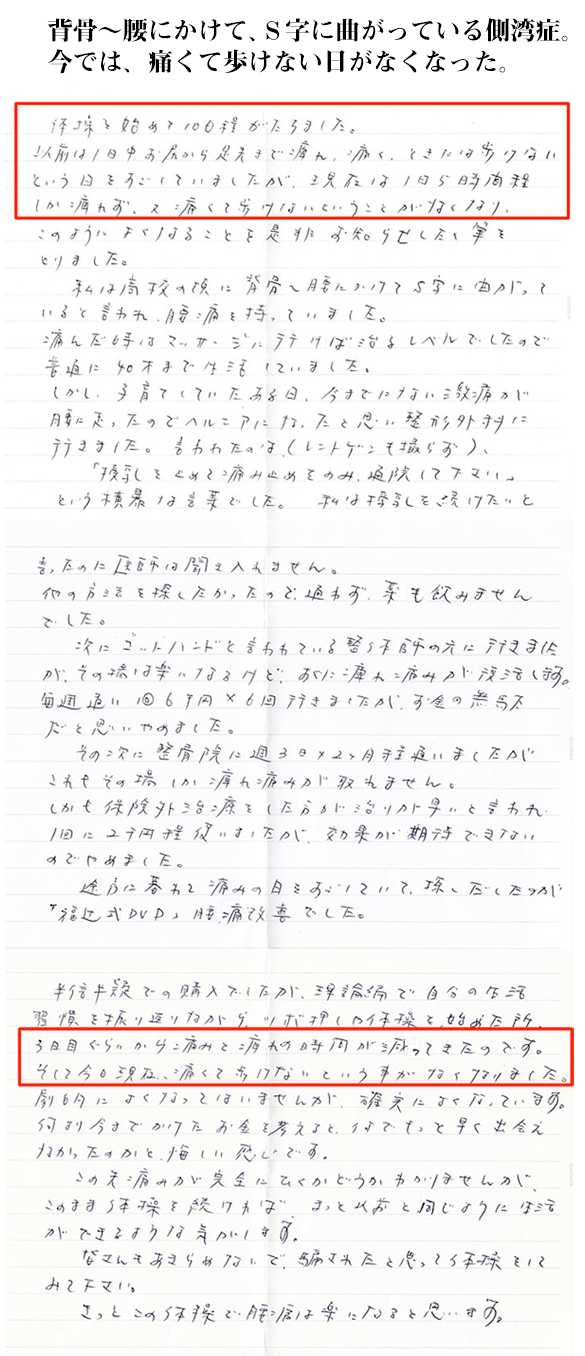 背骨～腰にかけて、Ｓ字に曲がっている側湾症。
今では、痛くて歩けない日がなくなった。
体操を始めて10日程がたちました。
以前は1日中お尻から足先まで痺れ、痛く、ときには歩けない
という日をすごしていましたが、現在は1日5時間程
しか痺れず、又痛くて歩けないということがなくなり、
このようによくなることを是非お知らせしたく筆を
とりました。
私は高校の頃に背骨～腰にかけてS字に曲がって
いると言われ、腰痛を持っていました。
痛んだ時はマッサージに行けば治るレベルでしたので
普通に40才まで生活していました。
しかし、子育てしていたある日、今までにない激痛が
腰に走ったのでヘルニアになったと思い整形外科に
行きました。言われたのは、(レントゲンも撮らず)、
「授乳を止めて痛み止めをのみ、通院して下さい」
という横暴な言葉でした。 私は授乳を続けたいと
言ったのに医師は聞き入れません。
他の方法を探したかったので、通わず、薬も飲みません
でした。
次にゴットハンドと言われている整体師の元に行きました
が、その場は楽になるけど、すぐに痺れ痛みが復活します。
毎週通い1回6千円×6回行きましたが、お金の無駄
だと思いやめました。
その次に整骨院に週3日×2ヶ月程通いましたが
これもその場しか痺れ痛みが取れません。
しかも保険外治療をした方が治りが早いと言われ、
1回に2千円程使いましたが、効果が期待できない
のでやめました。
途方に暮れて痛みの日をすごしていて、探しだしたのが
「福辻式DVD」腰痛改善でした。
半信半疑での購入でしたが、理論編で自分の生活
習慣を振り返りながら、ツボ押しや体操を始めた所、
3日目ぐらいから痛みと痺れの時間が減ってきたのです。
そして今日現在、痛くて歩けないという事がなくなりました。
劇的によくなってはいませんが、確実によくなっています。
何より今までかけたお金を考えると、なぜもっと早く出会え
なかったのかと、悔しい感じです。
この先痛みが完全にひくかどうかわかりませんが、
このまま体操を続ければ、きっと以前と同じように生活
ができるような気がします。
皆さんもあきらめないで、騙されたと思って体操をして
みて下さい。
きっとこの体操で腰痛は楽になると思います。